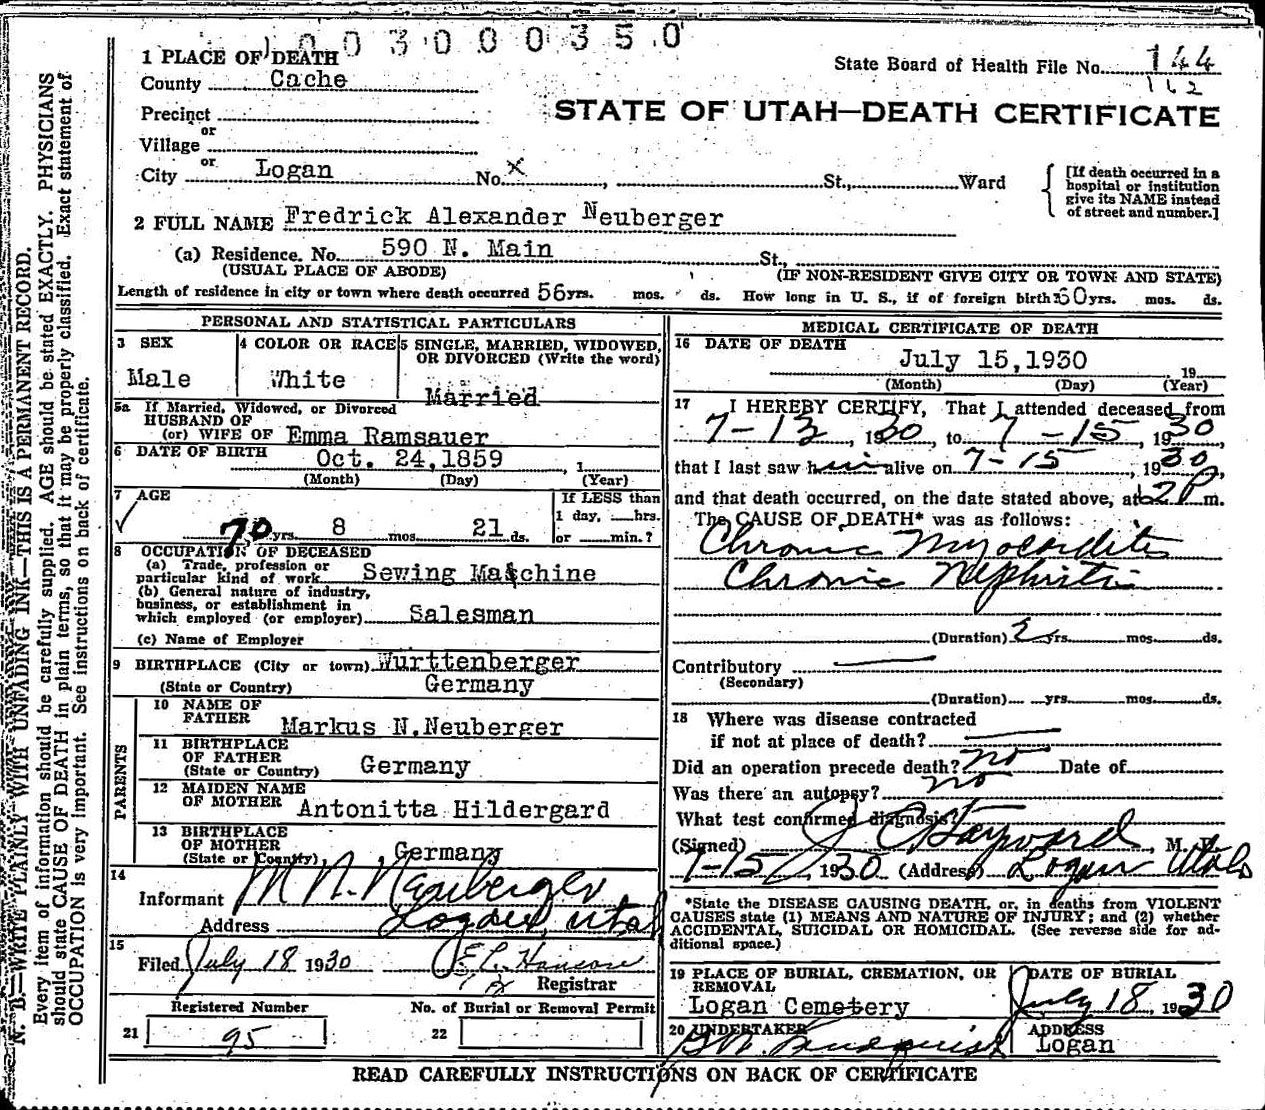 1 0 0 3 0 0 0 3 5 0
1 PLACE OF DEATH
County Cache
State Board of Health File No. 144
112
STATE OF UTAH—DEATH CERTIFICATE
Precinct
or
Village
or
City Logan No. X , St., Ward
[If death occurred in a hospital or institution give its NAME instead of street and number.]
2 FULL NAME Fredrick Alexander Neuberger
(a) Residence. No. 590 N. Main St.,
(USUAL PLACE OF ABODE) (IF NON-RESIDENT GIVE CITY OR TOWN AND STATE)
Length of residence in city or town where death occurred 56 yrs. mos. ds. How long in U. S., if of foreign birth? 60 yrs. mos. ds.
PERSONAL AND STATISTICAL PARTICULARS
3 SEX
Male
4 COLOR OR RACE
White
5 SINGLE, MARRIED, WIDOWED, OR DIVORCED (Write the word)
Married
5a If Married, Widowed, or Divorced
HUSBAND OF
(or) WIFE OF Emma Ramsauer
6 DATE OF BIRTH Oct. 24,1859 , 1
(Month) (Day) (Year)
7 AGE
70 yrs. 8 mos. 21 ds.
If LESS than
1 day, hrs.
or min.?
8 OCCUPATION OF DECEASED
(a) Trade, profession or
particular kind of work Sewing Machine
(b) General nature of industry,
business, or establishment in
which employed (or employer) Salesman
(c) Name of Employer
9 BIRTHPLACE (City or town) Wurttenberger
(State or Country) Germany
PARENTS
10 NAME OF
FATHER Markus N.Neuberger
11 BIRTHPLACE
OF FATHER
(State or Country) Germany
12 MAIDEN NAME
OF MOTHER Antonitta Hildergard
13 BIRTHPLACE
OF MOTHER
(State or Country) Germany
14
Informant M N. Neuberger
Address Logan, Utah
15
Filed July 18 1930 E. L. Hanson
Registrar
Registered Number No. of Burial or Removal Permit
21 95 22
MEDICAL CERTIFICATE OF DEATH
16 DATE OF DEATH
July 15,1930 19
(Month) (Day) (Year)
17 I HEREBY CERTIFY, That I attended deceased from
7-13, 1930, to 7-15, 1930,
that I last saw him alive on 7-15, 1930,
and that death occurred, on the date stated above, at 12 P m.
The CAUSE OF DEATH* was as follows:
Chronic Myocarditis
Chronic Nephritis
(Duration) 2 yrs. mos. ds.
Contributory
(Secondary)
(Duration) yrs. mos. ds.
18 Where was disease contracted
if not at place of death?
Did an operation precede death? no Date of
Was there an autopsy? no
What test confirmed diagnosis?
(Signed) J C Hayward, M. D.
7-15, 1930 (Address) Logan Utah
*State the DISEASE CAUSING DEATH, or, in deaths from VIOLENT
CAUSES state (1) MEANS AND NATURE OF INJURY; and (2) whether
ACCIDENTAL, SUICIDAL OR HOMICIDAL. (See reverse side for ad-
ditional space.)
19 PLACE OF BURIAL, CREMATION, OR
REMOVAL
Logan Cemetery
DATE OF BURIAL
July 18, 1930
20 UNDERTAKER
ADDRESS
Logan
READ CAREFULLY INSTRUCTIONS ON BACK OF CERTIFICATE
N. B.—WRITE PLAINLY WITH UNFADING INK—THIS IS A PERMANENT RECORD.
Every item of information should be carefully supplied. AGE should be stated EXACTLY. PHYSICIANS
should state CAUSE OF DEATH in plain terms, so that it may be properly classified. Exact statement of
OCCUPATION is very important. See instructions on back of certificate.